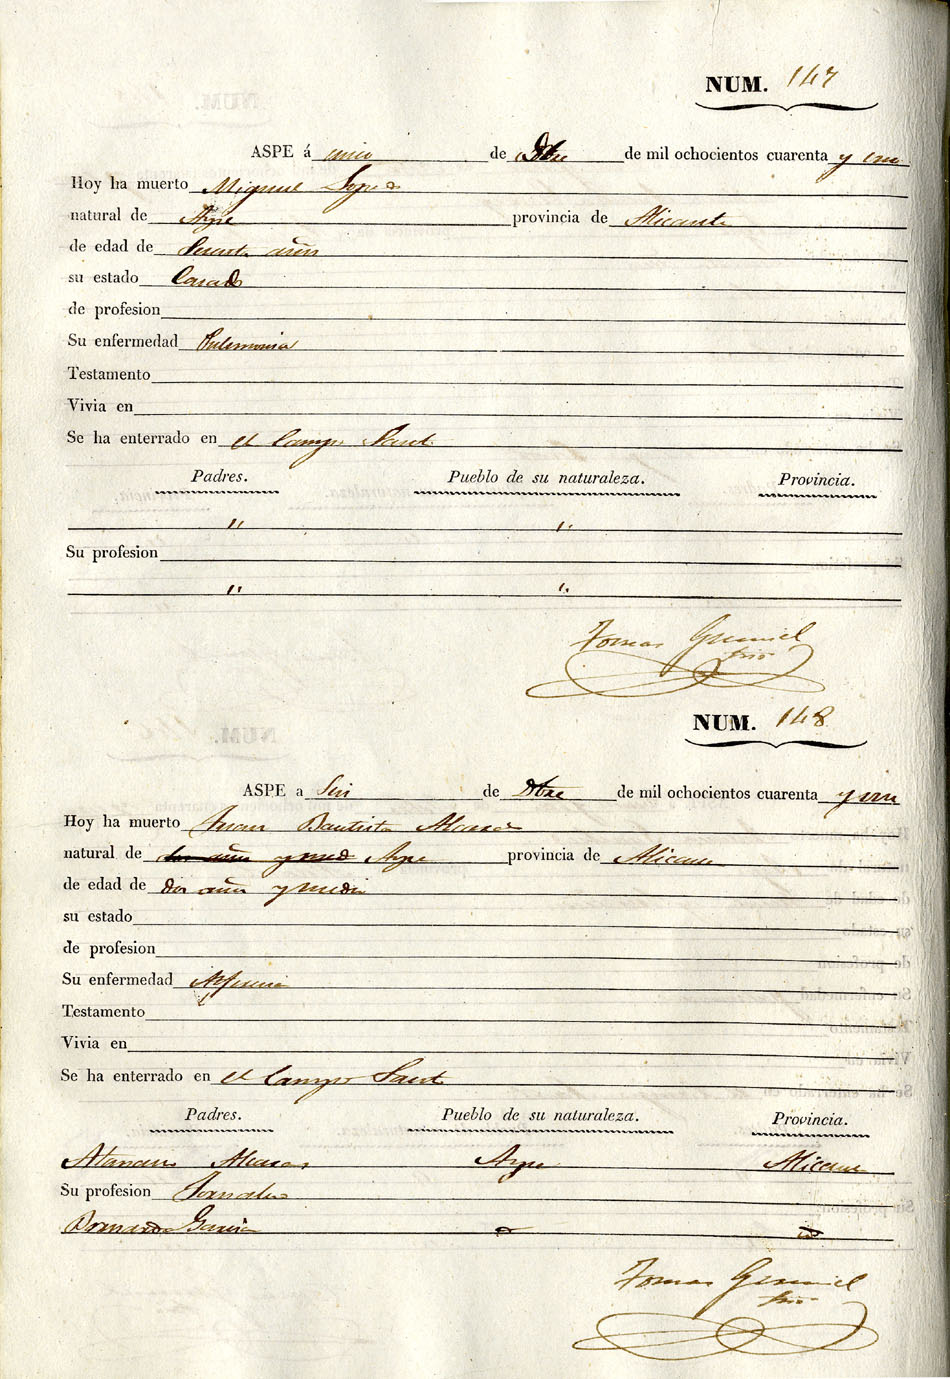 NUM. 147
ASPE á cinco de Dbre de mil ochocientos cuarenta y uno
Hoy ha muerto Miguel Lopez
natural de Aspe provincia de Alicante
de edad de años
su estado Casado
de profesion
Su enfermedad Pulmonia
Testamento
Vivia en
Se ha enterrado en el Campo Santo
Padres. Pueblo de su naturaleza. Provincia.
" "
Su profesion
" "
Tomas Gumiel
NUM. 148
ASPE a Seis de Dbre de mil ochocientos cuarenta y uno
Hoy ha muerto Juan Bautista Alcaraz
natural de dos años y med Aspe provincia de Alicante
de edad de dos años y medio
su estado
de profesion
Su enfermedad Alferecia
Testamento
Vivia en
Se ha enterrado en el Campo Santo
Padres. Pueblo de su naturaleza. Provincia.
Atanacio Alcaras Aspe Alicante
Su profesion Jornalero
Bernarda Garcia
Tomas Gumiel